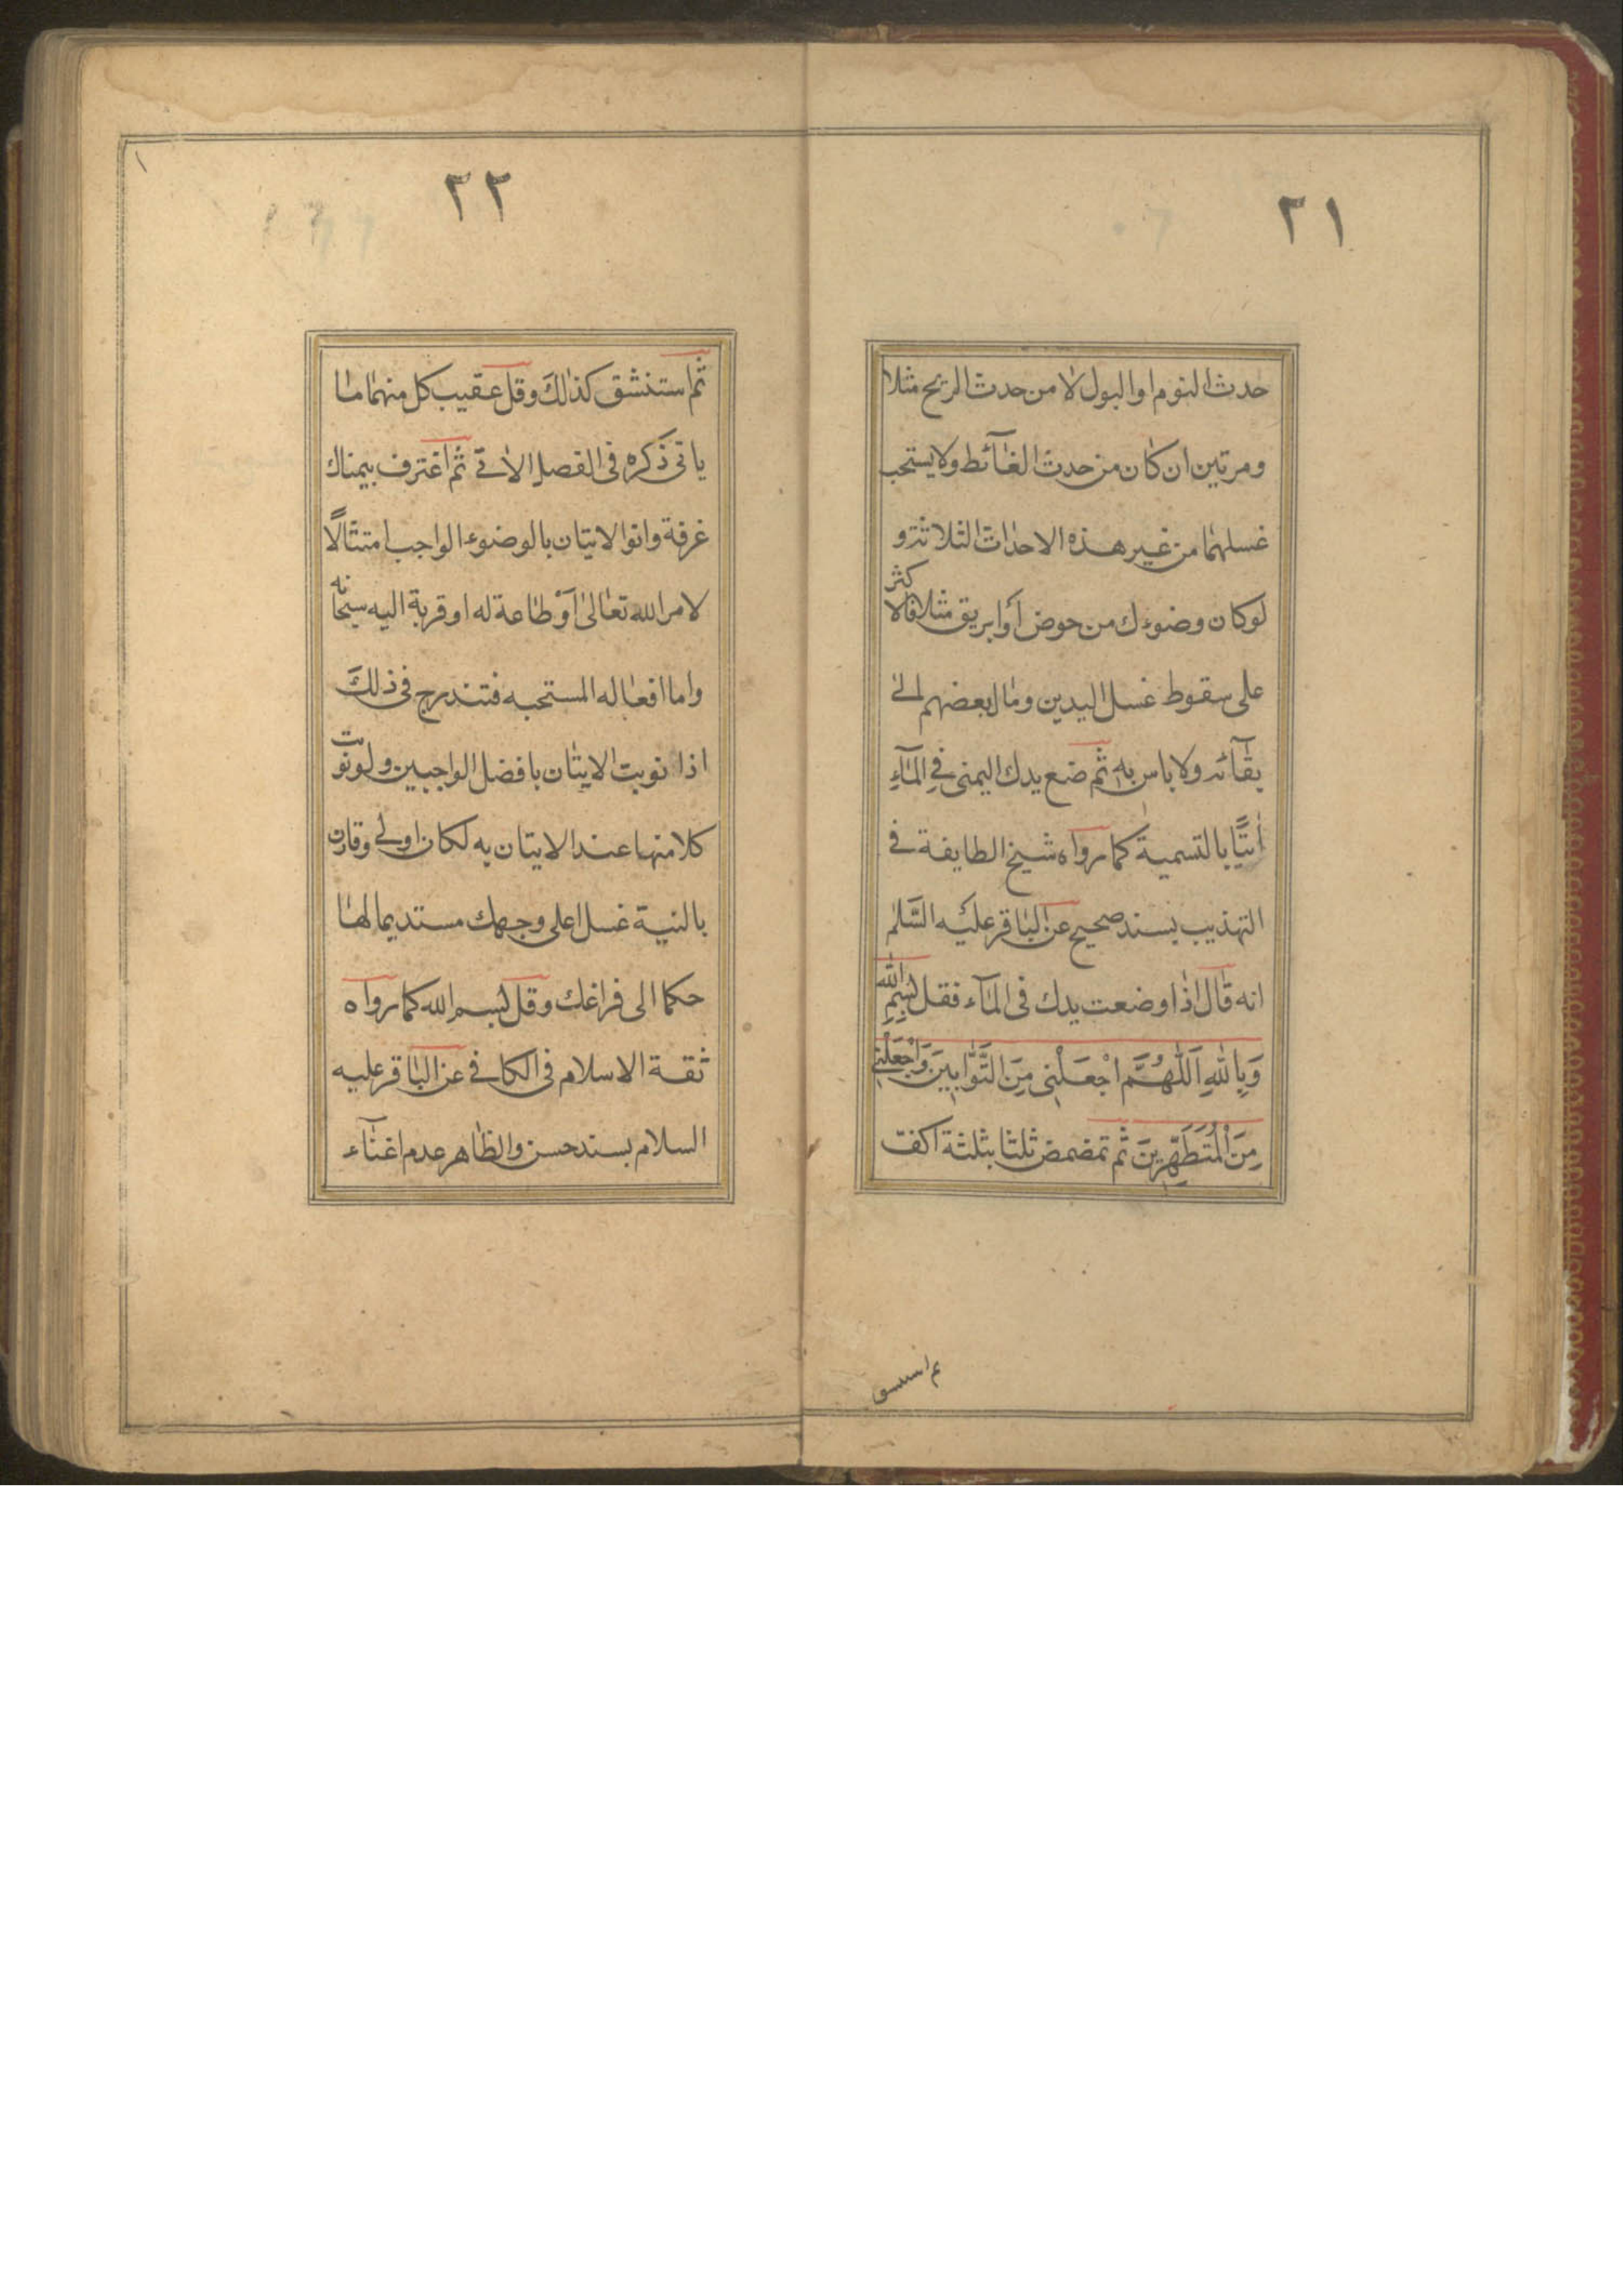 ٢١
حدث النوم او البول لا من حدث الريح مثلا
ومرتين ان كان من حدث الغآئط ولا يستحب
غسلهما من غير هذه الاحداث الثلاثة و
لوكان وضوءك من حوض أو ابريق مثلا فالاكثر
على سقوط غسل اليدين ومال بعضهم الى
بقآئه ولا باس به ثم ضع يدك اليمنى في المآءِ
اتيًا بالتسمية كما رواه شيخ الطايفة في
التهذيب بسند صحيح عن الباقر عليه السَّلم
انه قال اذا وضعت يدك فى المآء فقل بِسْمِ الله
وَبِاللهِ اَللّٰهُمَّ اجْعَلْنِى مِنَ التَّوَّابِينَ وَاجْعَلْنِى
مِنَ الْمُتَطَهِّرِينَ ثم تمضمض ثلثا بثلثة اكف
ثم استنشق
٢٢
ثم استنشق كذلكَ وقل عقيب كل منهما ما
ياتى ذكره فى الفصل الاتى ثم اغترف بيمناك
غرفة وانو الاتيان بالوضوء الواجب امتثالًا
لامر الله تعالىٰ أوْ طاعة له او قربة اليه سبحانه
واما افعاله المستحبه فتندرج فى ذلكَ
اذا نويت الاتيان بافضل الواجبين ولو نويت
كلا منها عند الاتيان به لكان اولى وقارن
بالنية غسل اعلى وجهك مستديما لها
حكما الى فراغك وقل بسم الله كما رواه
ثقة الاسلام فى الكافى عن الباقر عليه
السلام بسند حسن والظاهر عدم اغنآء